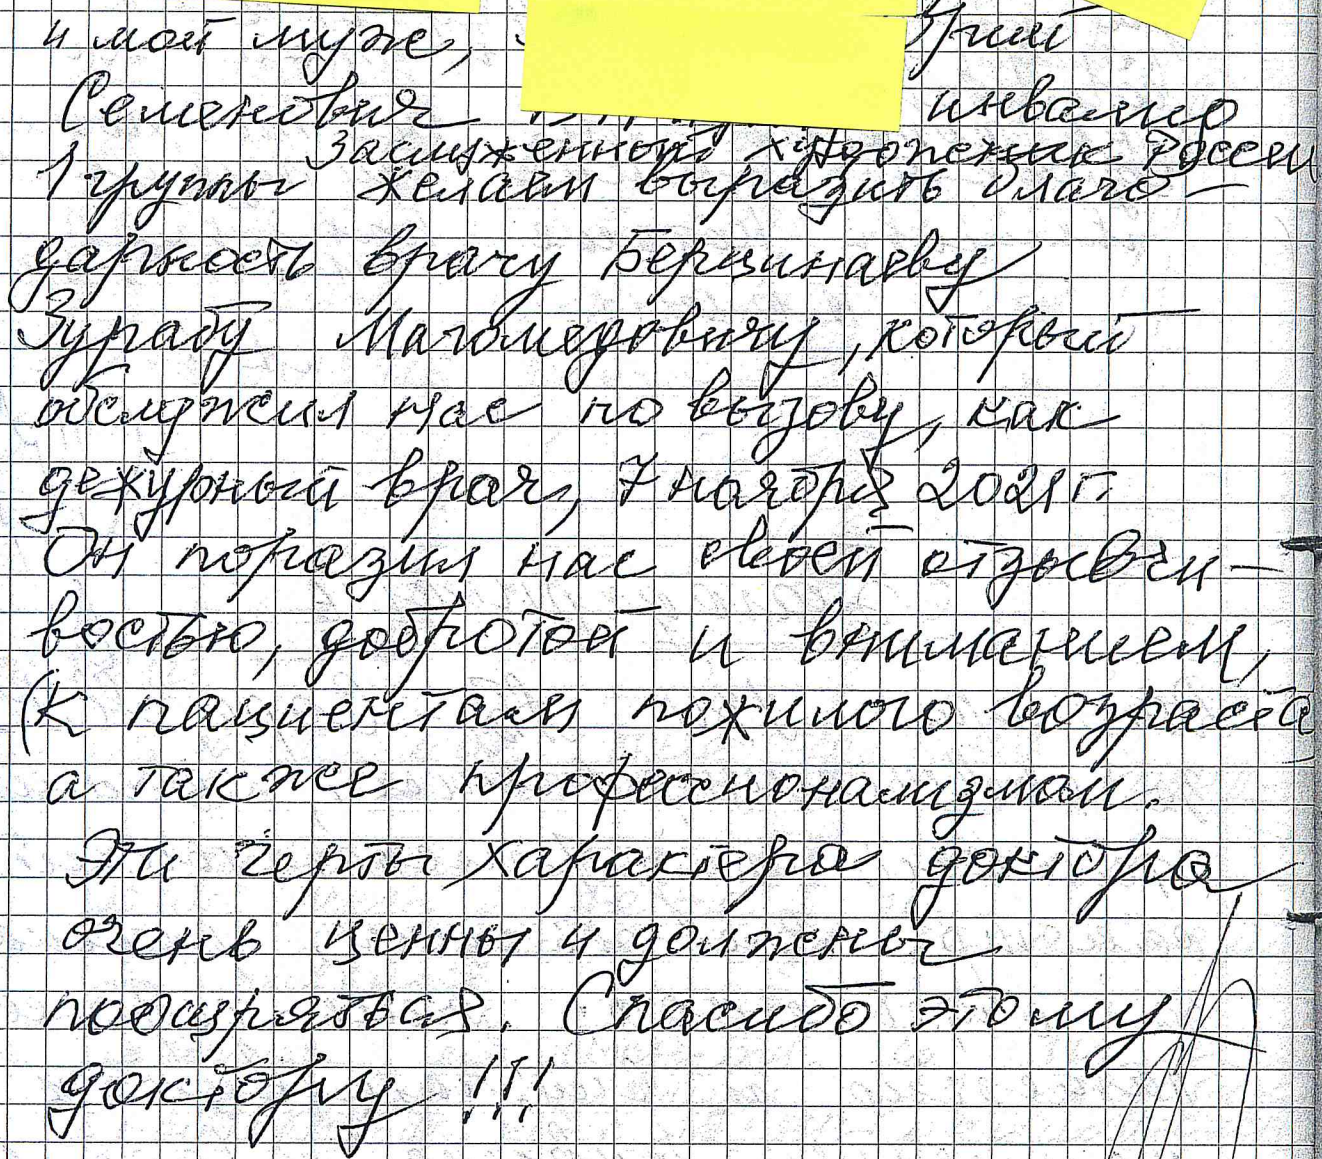 и мой муж,
Семенович инвалид
Заслуженный художник России
1 группы желаем выразить благо-
дарность врачу Берцинаеву
Зурабу Магомедовичу, который
обслужил нас по вызову, как
дежурный врач, 7 ноября 2021 г.
Он поразил нас своей отзывчи-
востью, добротой и вниманием,
(к пациентам пожилого возраста)
а также профессионализмом.
Эти черты характера доктора
очень ценны и должены
поощряться. Спасибо этому
доктору !!!